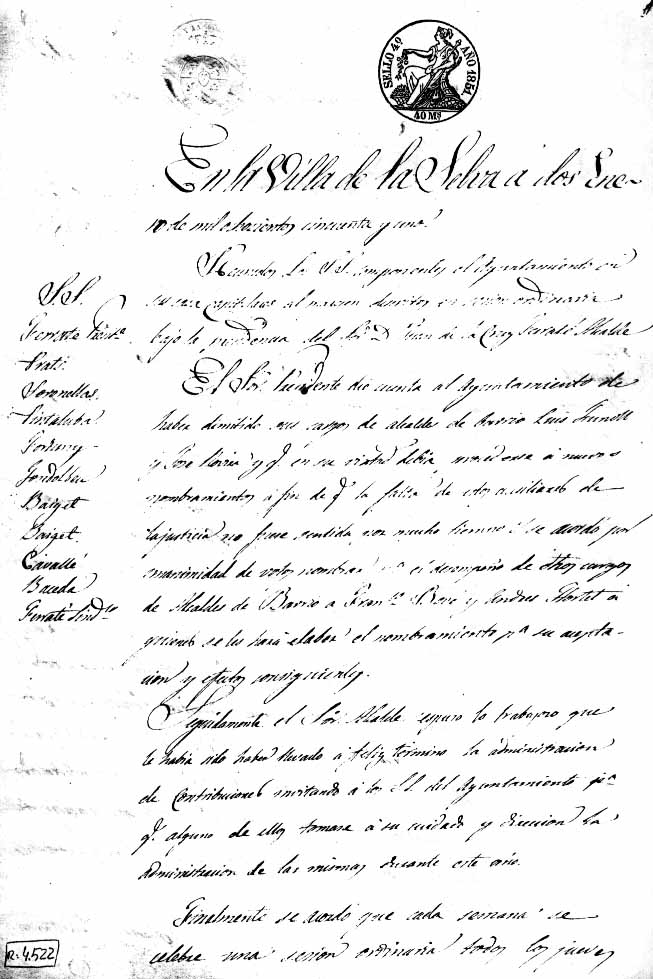 SELLO 4º AÑO 1851.
40 Ms
En la Villa de la Selva a dos Ene-
ro de mil ochocientos cincuenta y uno.
Reunidos los SS. componentes el Ayuntamiento en
su casa capitular al margen descritos en sesion ordinaria
bajo la presidencia del Sor. D. Juan de la Cruz Alcalde
El Sor. Presidente dio cuenta al Ayuntamiento de
haber dimitido sus cargos de alcaldes de Barrio Luis
y Jose y q. en su virtud debia procederse á nuevos
nombramientos á fin de q. la falta de estos auxiliares de
la justicia no fuese sentida por mucho tiempo: se acordó por
unanimidad de votos nombrar pa el desempeño de dhos cargos
de Alcaldes de Barrio a Franco. Boré y Andres á
quienes se les hará saber el nombramiento pa su acepta-
cion y efectos consiguientes.
Seguidamente el Sor. Alcalde espuso lo trabajoso que
le habia sido haber llevado a feliz termino la administracion
de Contribuciones invitando á los SS. del Ayuntamiento pa
q. alguno de ellos tomase á su cuidado y direccion la
administracion de las mismas durante este año.
Finalmente se acordó que cada semana se
celebre una sesion ordinaria todos los jueves
SS.
Ferrate
Prats.
Soronellas.
Fortuny
Baiget
Baiget.
Cavallé
Ferraté Sindco.
R. 4.522